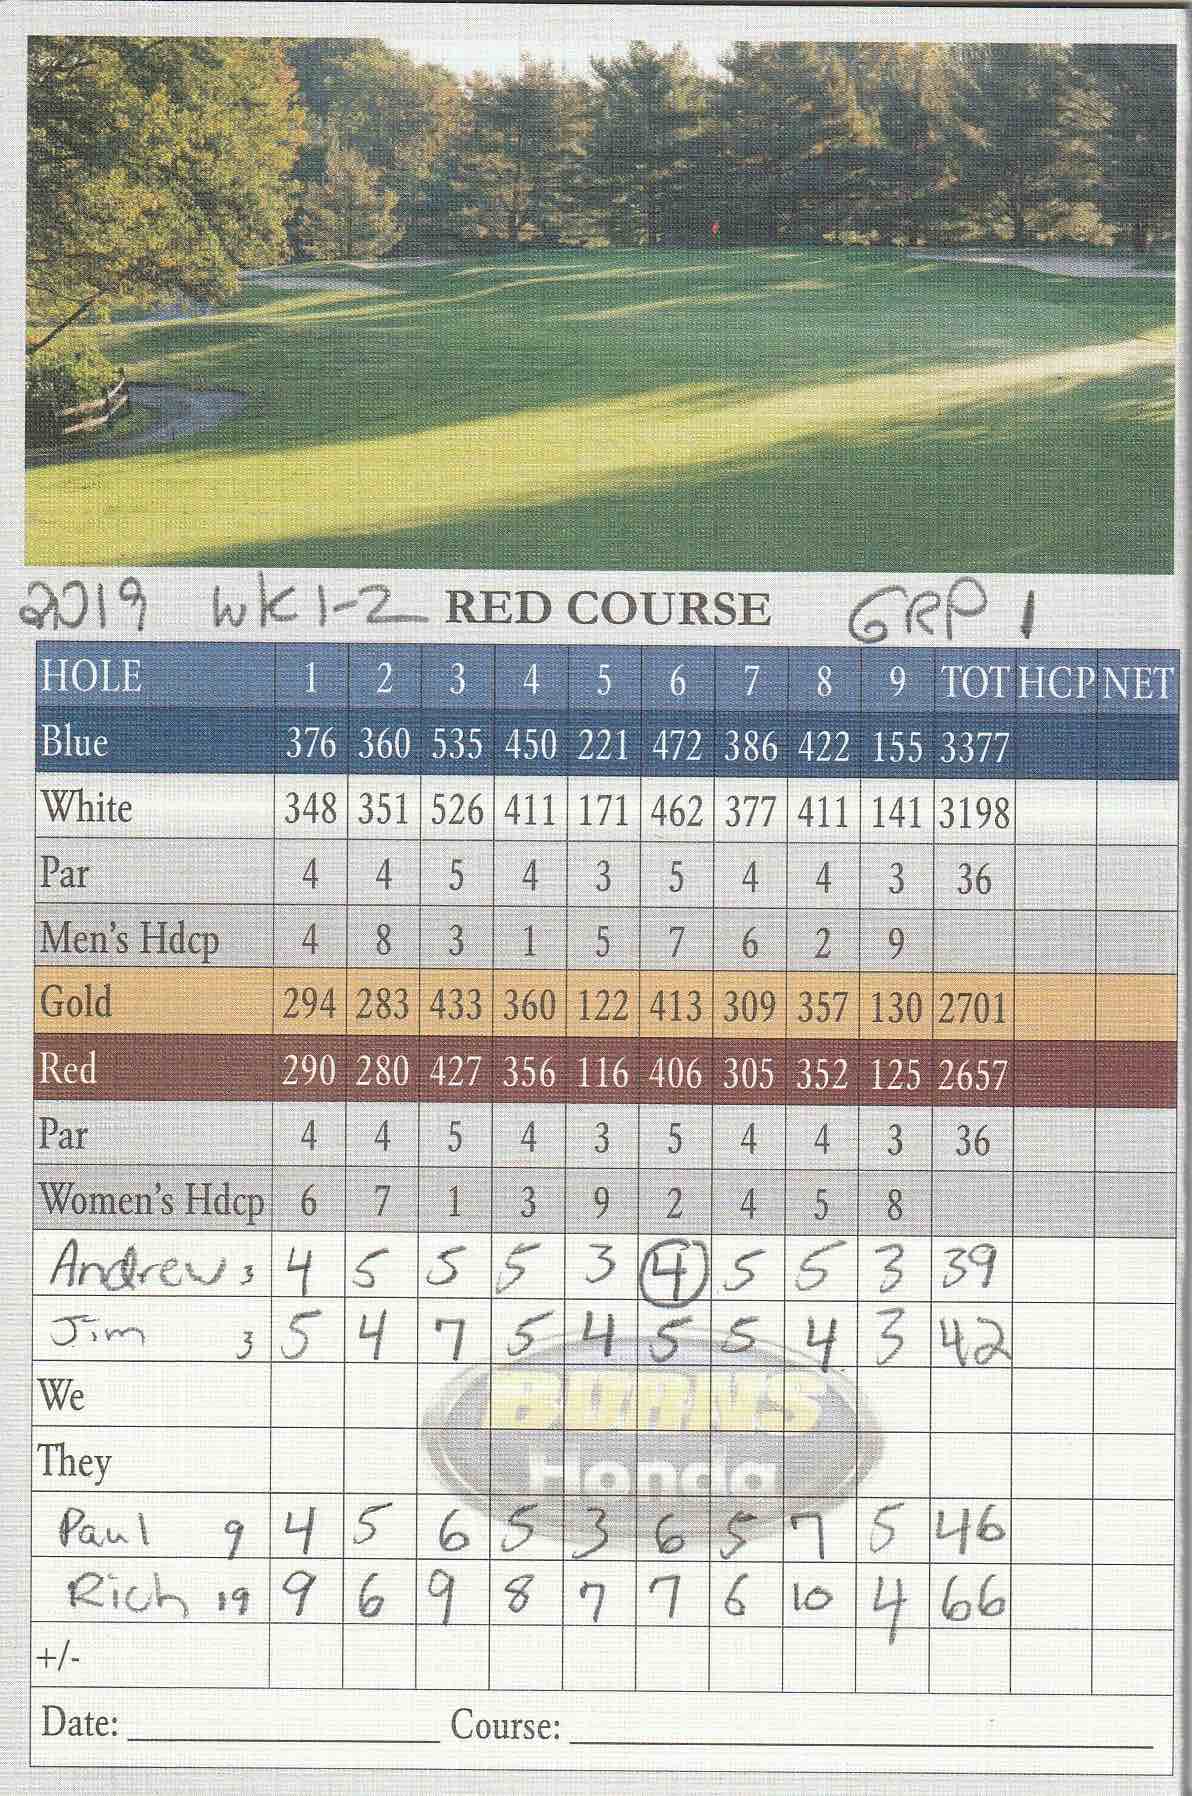 2019 WK1-2 RED COURSE GRP 1
HOLE 1 2 3 4 5 6 7 8 9 TOT HCP NET
Blue 376 360 535 450 221 472 386 422 155 3377
White 348 351 526 411 171 462 377 411 141 3198
Par 4 4 5 4 3 5 4 4 3 36
Men's Hdcp 4 8 3 1 5 7 6 2 9
Gold 294 283 433 360 122 413 309 357 130 2701
Red 290 280 427 356 116 406 305 352 125 2657
Par 4 4 5 4 3 5 4 4 3 36
Women's Hdcp 6 7 1 3 9 2 4 5 8
Andrew 3 4 5 5 5 3 4 5 5 3 39
Jim 3 5 4 7 5 4 5 5 4 3 42
We
BURNS
They
Honda
Paul 9 4 5 6 5 3 6 5 7 5 46
Rich 19 9 6 9 8 7 7 6 10 4 66
+/-
Date: Course: